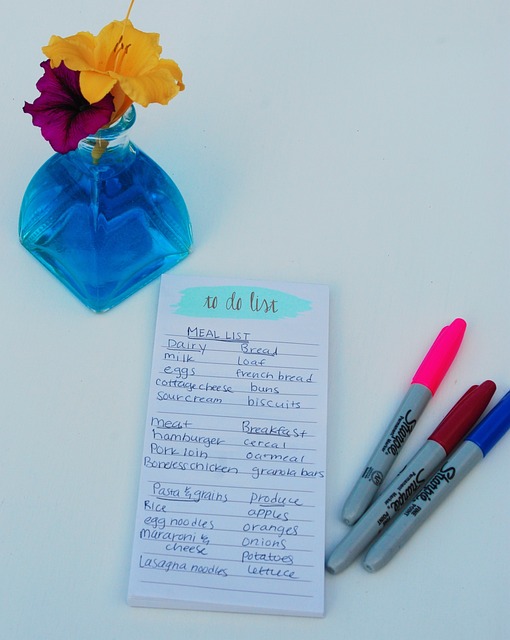 to do list
MEAL LIST
Dairy Bread
milk Loaf
eggs french bread
cottage cheese buns
sour cream biscuits
meat Breakfast
hamburger cereal
Pork loin oatmeal
Boneless chicken granola bars
Pasta & grains Produce
Rice apples
egg noodles oranges
Mararoni & onions
cheese Potatoes
Lasagna noodles lettuce
Sharpie
Sharpie
Sharpie